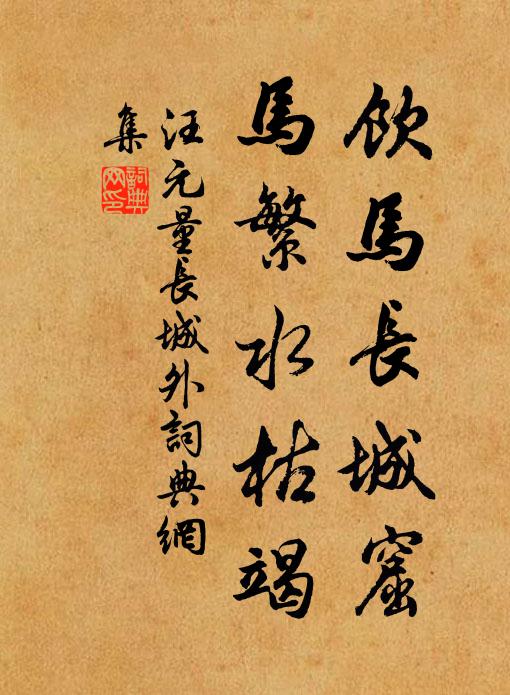 飲馬長城窟
馬繁水枯竭
汪元量長城外詞典網
集
詞典網印